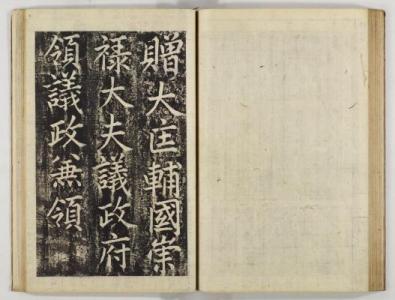 贈大匡輔國崇
祿大夫議政府
領議政兼領